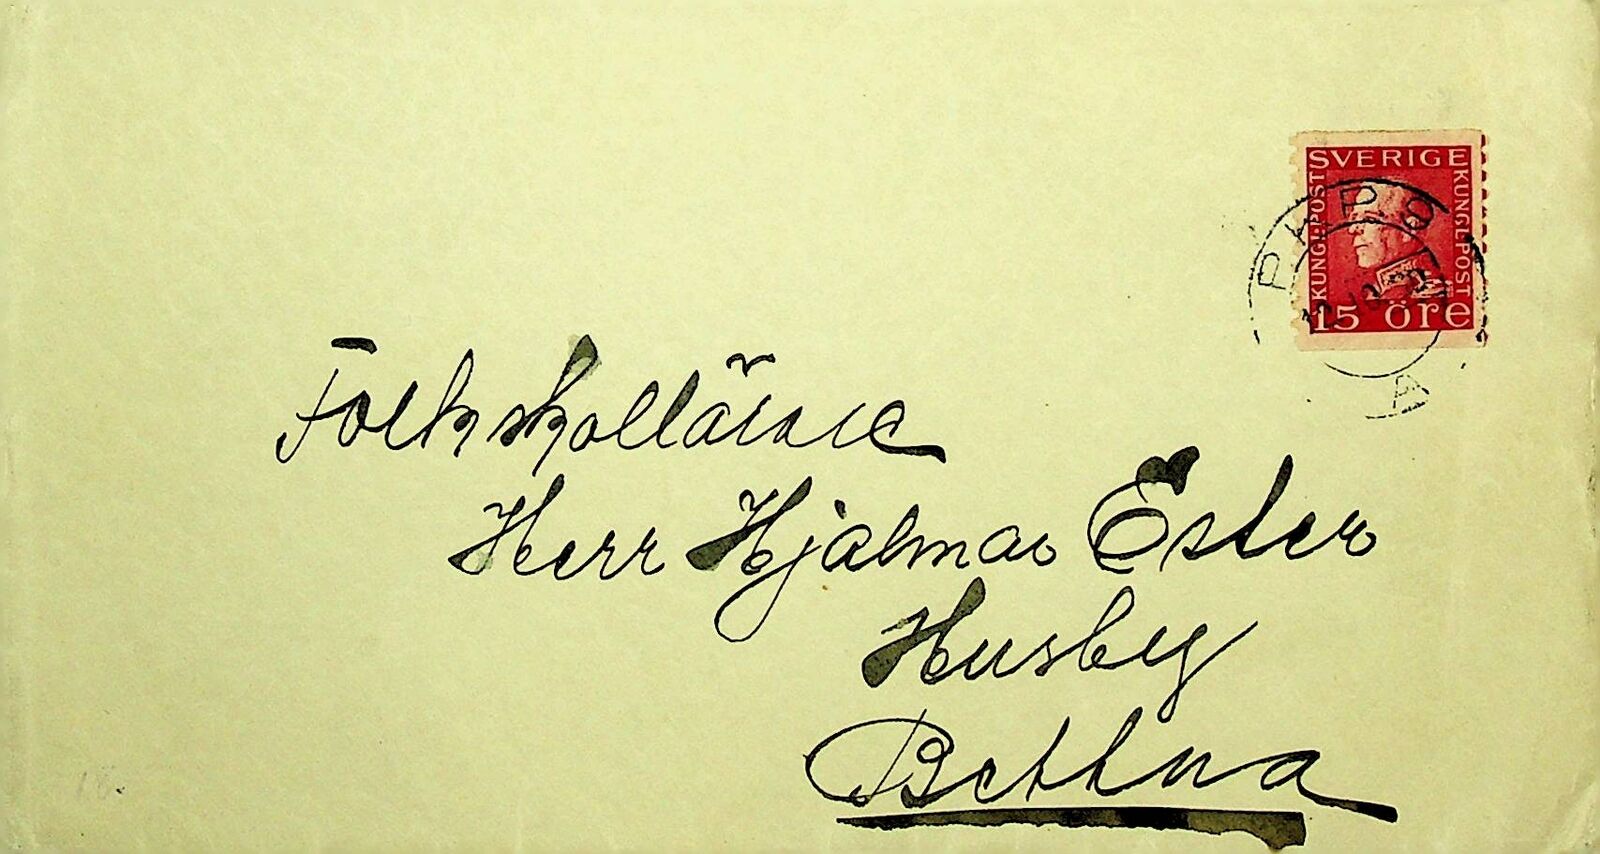 SVERIGE
KUNGL. POST
KUNGL. POST
15 öre
Folkskollärare
Herr Hjalmar Ester
Husby
Bettna